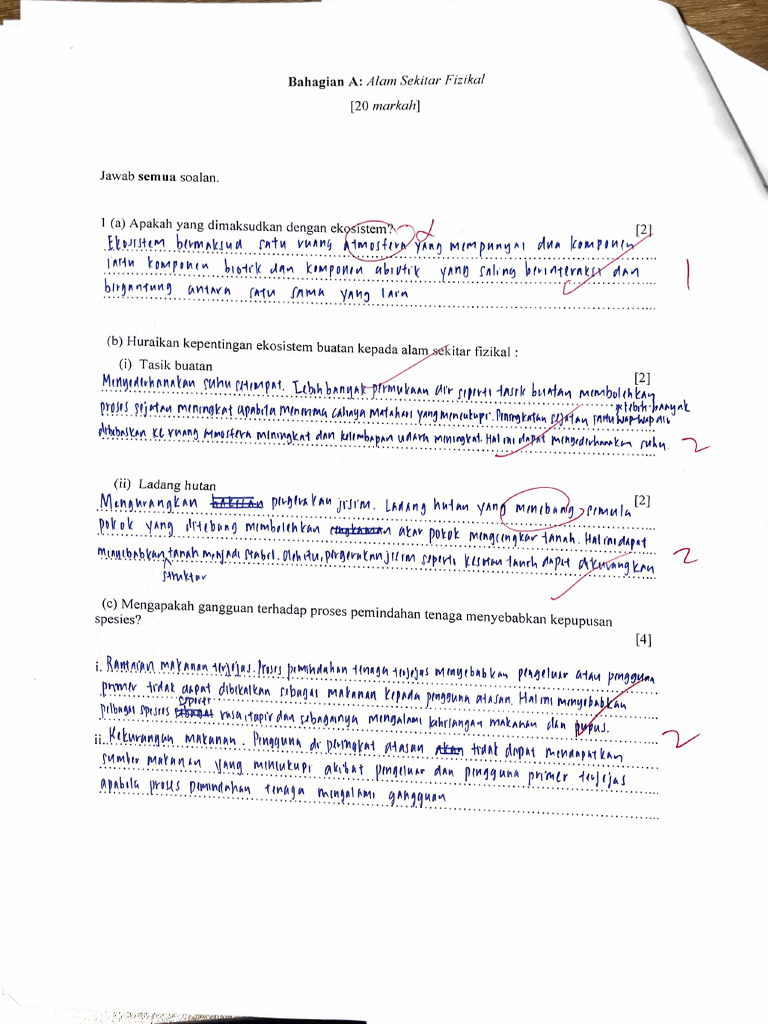 Bahagian A: Alam Sekitar Fizikal
[20 markah]
Jawab semua soalan.
1 (a) Apakah yang dimaksudkan dengan ekosistem?
[2]
Ekosistem bermaksud satu ruang atmosfera yang mempunyai dua komponen
iaitu komponen biotik dan komponen abiotik yang saling berinteraksi dan
bergantung antara satu sama yang lain
1
(b) Huraikan kepentingan ekosistem buatan kepada alam sekitar fizikal :
(i) Tasik buatan
[2]
Menyederhanakan suhu setempat. Lebih banyak permukaan air seperti tasik buatan membolehkan
proses sejatan meningkat apabila menerima cahaya matahari yang mencukupi. Peningkatan sejatan
lebih banyak
wap-wap air
dibebaskan ke ruang atmosfera meningkat dan kelembapan udara meningkat. Hal ini dapat menyederhanakan suhu.
2
(ii) Ladang hutan
[2]
Mengurangkan pergerakan jisim. Ladang hutan yang menebang semula
pokok yang ditebang membolehkan akar pokok mencengkar tanah. Hal ini dapat
menyebabkan struktur tanah menjadi stabil. Oleh itu, pergerakan jisim seperti kesotan tanah dapat dikurangkan
2
(c) Mengapakah gangguan terhadap proses pemindahan tenaga menyebabkan kepupusan
spesies?
[4]
i. Rantaian makanan terjejas. Proses pemindahan tenaga terjejas menyebabkan pengeluar atau pengguna
primer tidak dapat dibekalkan sebagai makanan kepada pengguna atasan. Hal ini menyebabkan
pelbagai spesies seperti rusa, tapir dan sebagainya mengalami kehilangan makanan dan pupus.
2
ii. Kekurangan makanan. Pengguna di peringkat atasan tidak dapat mendapatkan
sumber makanan yang mencukupi akibat pengeluar dan pengguna primer terjejas
apabila proses pemindahan tenaga mengalami gangguan